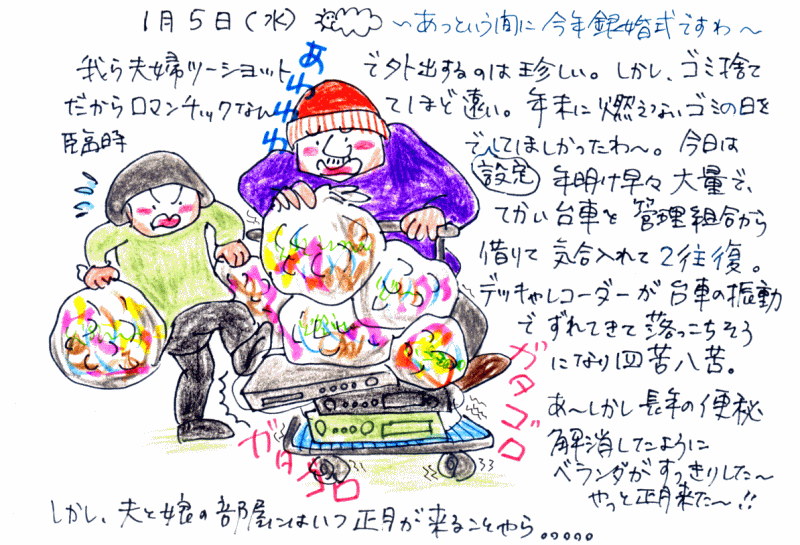 1月5日(水) 〜あっという間に 今年銀婚式ですわ〜
我ら夫婦ツーショット で外出するのは珍しい。しかし、ゴミ捨て
だからロマンチックなん てほど遠い。年末に燃えないゴミの日を
臨時 でしてほしかったわ〜。今日は
設定 年明け早々 大量で、
でかい台車を管理組合から
借りて 気合入れて 2往復。
デッキやレコーダーが台車の振動
でずれてきて落っこちそう
になり四苦八苦。
あ〜しかし長年の便秘
解消したように
ベランダがすっきりした〜
やっと正月来た〜!!
あわわわ
ガタゴロ
ガタゴロ
しかし、夫と娘の部屋にはいつ正月が来ることやら.....